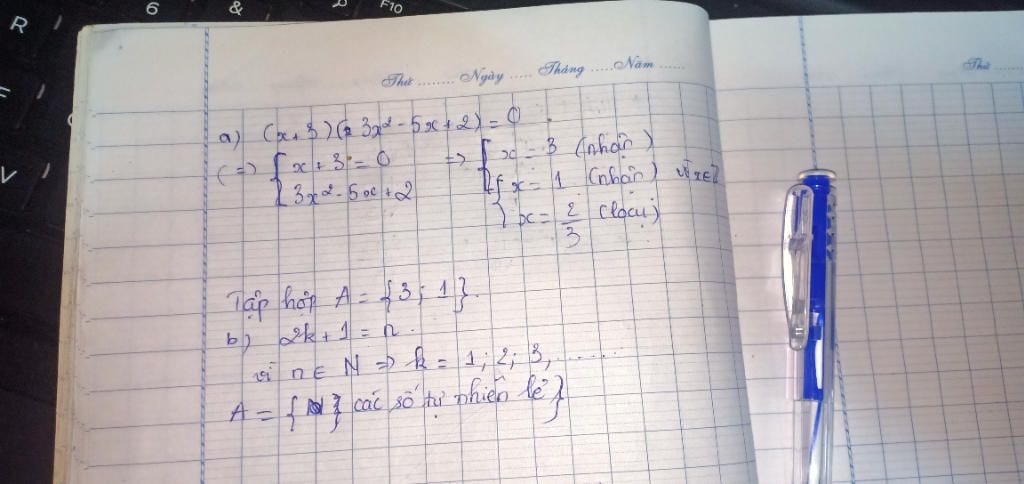 R
6
&
F10
F
V
Thứ ........ Ngày ...... Tháng ...... Năm ......
Thứ ......
a) (x+3)(3x² - 5x + 2) = 0
(=> [ x + 3 = 0 => [ x = 3 (nhận)
[ 3x² - 5x + 2 [ { x = 1 (nhận) vì x∈Z
{ x = 2/3 (loại)
Tập hợp A = {3; 1}.
b) 2k + 1 = n.
vì n ∈ N => k = 1; 2; 3, ......
A = { các số tự nhiên lẻ}